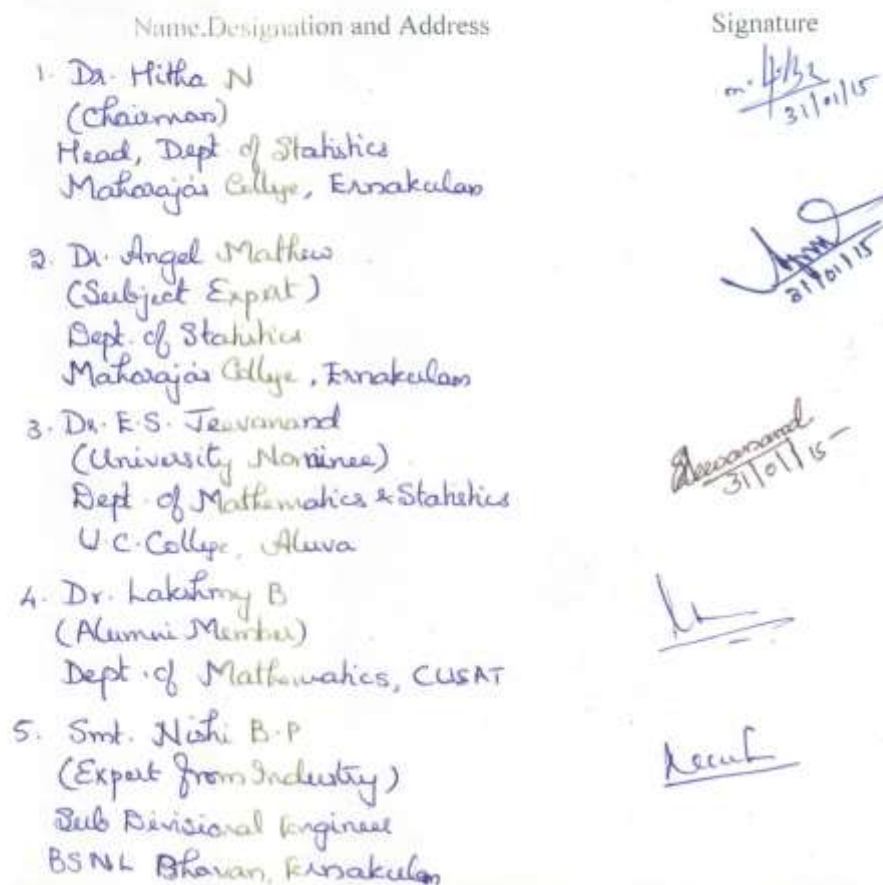 Name.Designation and Address Signature
1. Dr. Mitha N
(Chairman)
31/01/15
Head, Dept of Statistics
Maharajas College, Ernakulam
2. Dr. Angel Mathew
(Subject Expert)
31/01/15
Dept. of Statistics
Maharajas College, Ernakulam
3. Dr. E.S. Jeevanand
Jeevanand
(University Nominee)
31/01/15
Dept. of Mathematics & Statistics
U.C. College, Aluva
4. Dr. Lakshmy B
(Alumni Member)
Dept. of Mathematics, CUSAT
5. Smt. Nishi B.P
(Expert from Industry)
Sub Divisional Engineer
BSNL Bhavan, Ernakulam